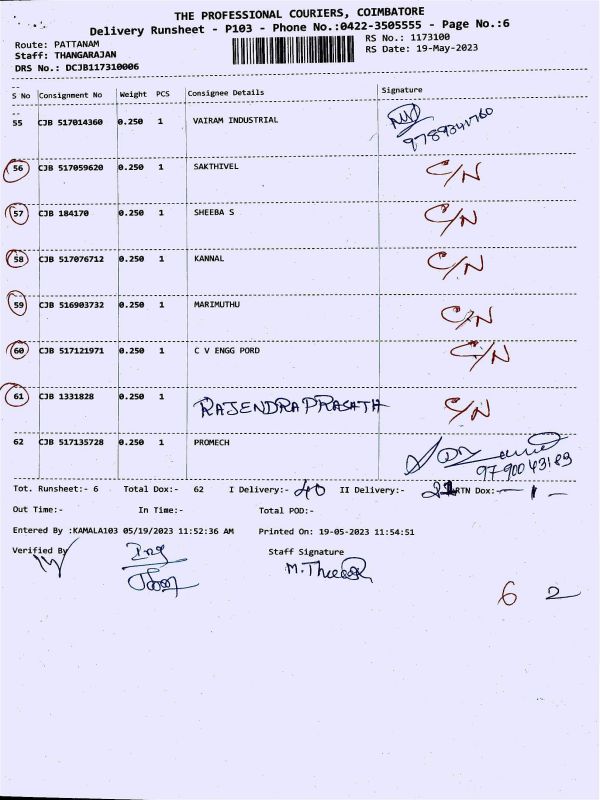 THE PROFESSIONAL COURIERS, COIMBATORE
Delivery Runsheet - P103 - Phone No.:0422-3505555 - Page No.:6
Route: PATTANAM RS No.: 1173100
Staff: THANGARAJAN RS Date: 19-May-2023
DRS No.: DCJB117310006
S No Consignment No Weight PCS Consignee Details Signature
55 CJB 517014360 0.250 1 VAIRAM INDUSTRIAL
56 CJB 517059620 0.250 1 SAKTHIVEL C/N
57 CJB 184170 0.250 1 SHEEBA S C/N
58 CJB 517076712 0.250 1 KANNAL C/N
59 CJB 516903732 0.250 1 MARIMUTHU C/N
60 CJB 517121971 0.250 1 C V ENGG PORD C/N
61 CJB 1331828 0.250 1 RAJENDRAPRASATH C/N
62 CJB 517135728 0.250 1 PROMECH
9790043183
Tot. Runsheet:- 6 Total Dox:- 62 I Delivery:- 40 II Delivery:- RTN Dox:- 1 -
Out Time:- In Time:- Total POD:-
Entered By :KAMALA103 05/19/2023 11:52:36 AM Printed On: 19-05-2023 11:54:51
Verified By Staff Signature
62